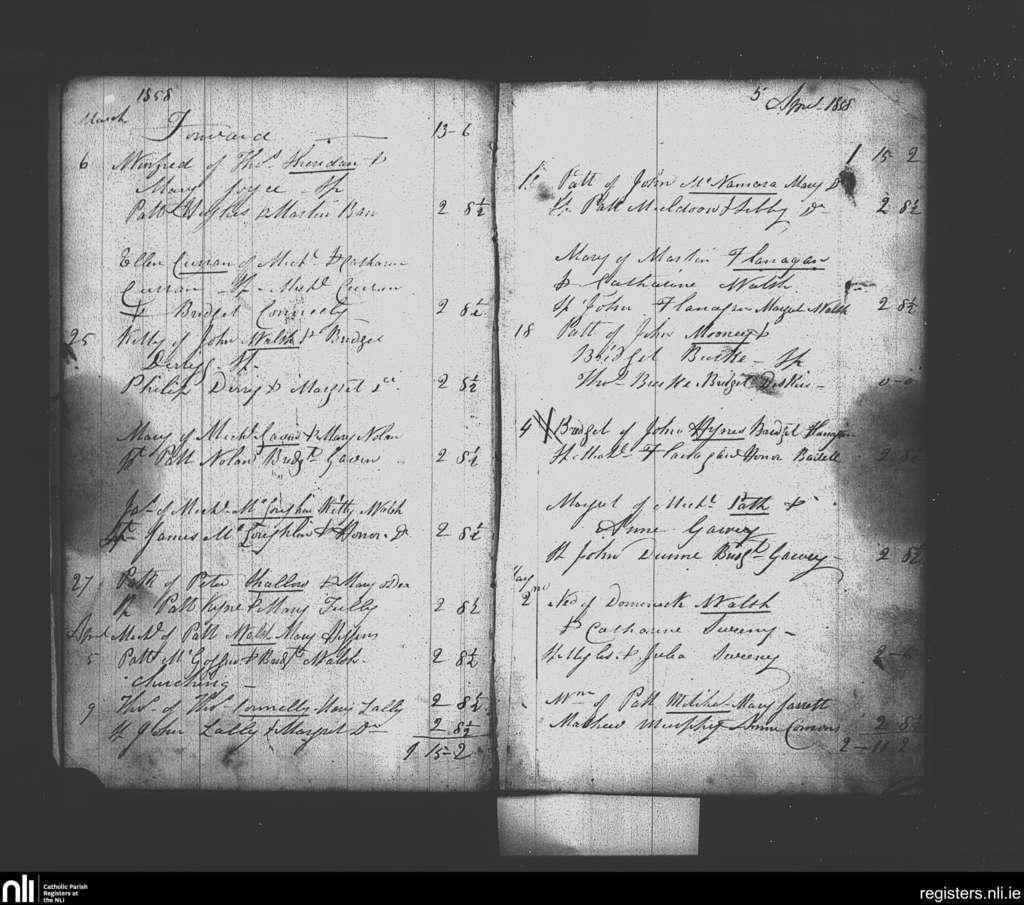 1858
March Forward 13-6
6 Winfred of Thos. Sheridan &
Mary Joyce Sp
Patt Hughes & Martin Ban 2 8½
Ellen Curran of Michl. & Catharin
Curran Sp Michl. Curran
& Bridget Connelly 2 8½
25 Kitty of John Walsh & Bridget
Derry Sp.
Philip Derry & Margret 2 8½
Mary of Michl. Gavin & Mary Nolan
Sp Patt Nolan Bridgt. Gavin 2 8½
Jas. of Michl. McLoughlin Kitty Walsh
Sp. James McLoughlin & Honor Do 2 8½
27 Patt of Peter Shallow & Mary Dea
Sp Patt Kyne & Mary Tully 2 8½
April Michl. of Patt Walsh Mary
5 Patt McGoff & Bridgt. Walsh 2 8½
Churching
9 Thos. of Thos. Connelly Mary Lally 2 8½
Sp John Lally & Margret Do 2 8½
1 15-2
5 April 1858
1 15 2
Patt of John McNamara Mary Do
Sp Patt Muldoon & Sibby Do 2 8½
Mary of Martin Flanagan
& Catharine Walsh
Sp John Flanagan Margret Walsh 2 8½
18 Patt of John Mooney &
Bridget Burke - Sp
Thos. Burke Bridget 0-0
4 Bridget of John Hynes Bridget Flanagan
Flanagan Honor 2 8½
Margret of Michl. &
Anne Gavey
Sp John Dunne Bridgt. Gavey 2 8½
May
2nd Ned of Dominick Walsh
& Catharine Sweeny
& Julia Sweeney 2-6
Wm of Patt Mary Jarrett
Mathew Murphy Anne Comons 2 8½
2-11 2
nli
Catholic Parish
Registers at
the NLI
registers.nli.ie